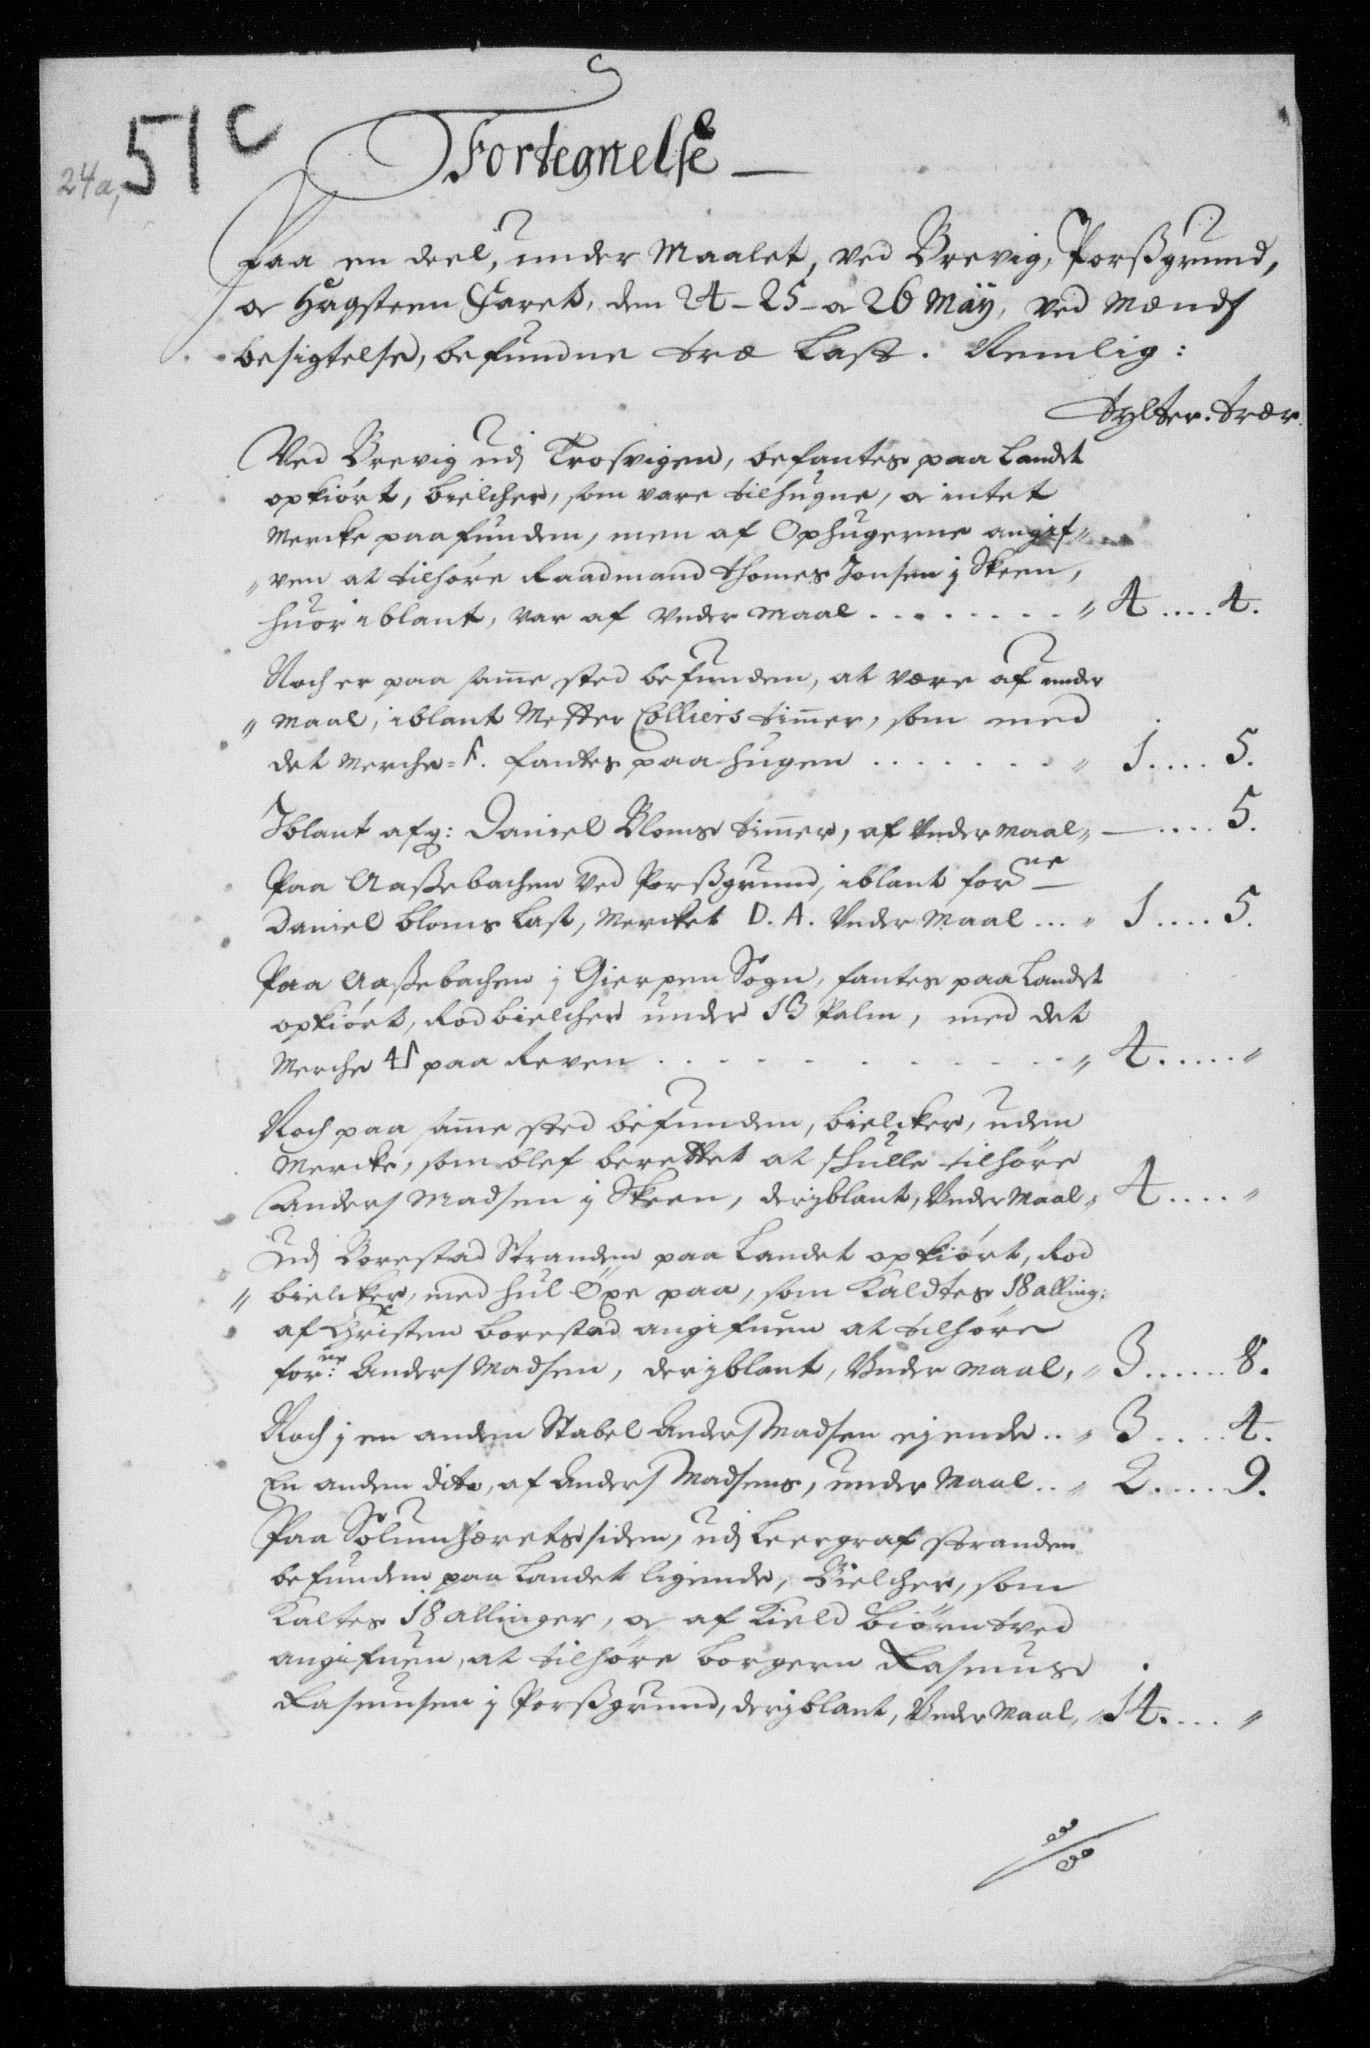 24a, 51c
Fortegnelse
Paa en deel, under Maalet, ved Brevig, Porßgrund,
oc Hugsteen Faret, den 24 - 25 - oc 26 Maÿ, ved Mænds
besigtelse, befundne træ Last. Nemlig:
Tylter. Træer.
Ved Brevig udj Trosvigen, befantes paa Landet
opkiört, bielcher, som vare tilhugne, oc intet
Mercke paafunden, men af Ophugerne angif-
ven at tilhöre Raadmand Thomes Jonsen j Skeen,
huor iblant, var af Under Maal . . . . . . . . " 4 . . . . 4.
Noch er paa same sted befunden, at være af under
Maal, iblant Metter Colliers timer, som med
det Merche = . fantes paa hugen . . . . . . . " 1. . . . 5.
Jblant afg: Daniel Bloms timer, af Under Maal " — . . . . 5.
Paa Aaßebachen ved Porßgrund, iblant forne
Daniel Bloms Last, Mercket D. A. Under Maal . . . " 1. . . . 5.
Paa Aaßebachen j Gierpen Sogn, fantes paa Landet
opkiört, Rod bielcher under 13 Palm, med det
Merche paa Reven . . . . . . . . . . . . " 4. . . . . "
Noch paa same sted befunden, bielcker, uden
Mercke, som blef berettet at skulle tilhöre
Anders Madsen j Skeen, derjblant, Under Maal " 4. . . . "
Udj Borestad Stranden paa Landet opkiört, Rod
bielcker, med hul Öxe paa, som Kaldtes 18 alling:
af Christen Borestad angifuen at tilhöre
forne: Anders Madsen, derjblant, Under Maal, " 3 . . . . . . 8.
Noch j en anden Stabel Anders Madsen ejende . . " 3 . . . . 4.
En anden dito, af Anders Madsens, under Maal . . " 2. . . . 9.
Paa Solum hærets siden, udj Leergraf stranden
befunden paa Landet ligende, Bielcher, som
Kaltes 18 allinger, oc af Kield Biörntved
angifuen, at tilhöre borgeren Rasmus
Rasmusen j Porßgrund, derjblant, Under Maal, " 14. . . . "